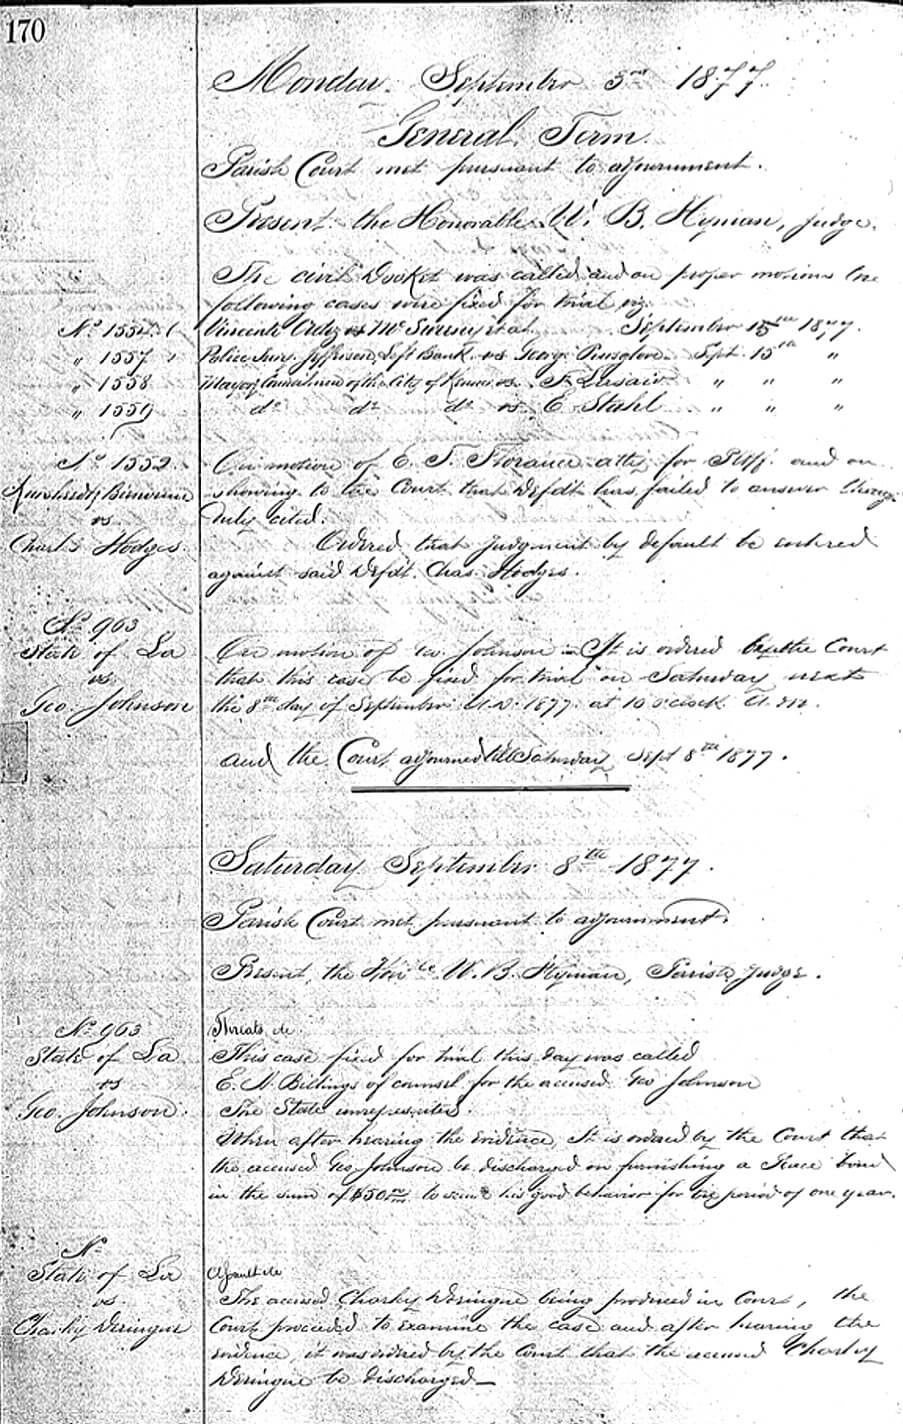 170
Monday. September 3rd 1877.
General Term.
Parish Court met pursuant to adjournment.
Present the Honorable W. B. Hyman, Judge.
The civil Docket was called and on proper motions the
following cases were fixed for trial viz.
No 1554 Vincente Ordy vs Mc et al. September 15th 1877.
" 1557 Police Jury Jefferson Left Bank vs George Sept. 15th "
" 1558 Mayor & Councilmen of the City of Kenner vs. F. " " "
" 1559 do do do vs E. Stahl " " "
No 1552.
Bienvenu
vs.
Charles Hodges.
On motion of E. T. Florance atty for Plff. and on
showing to the Court that Defdt has failed to answer though
duly cited.
Ordered that Judgment by default be entered
against said Defdt. Chas. Hodges.
No 963
State of La
vs.
Geo. Johnson
On motion of Johnson It is ordered by the Court
that this case be fixed for trial on Saturday next
the 8th day of September A.D. 1877 at 10 o'clock A.M.
and the Court adjourned till Saturday Sept 8th 1877.
Saturday September 8th 1877.
Parish Court met pursuant to adjournment.
Present, the Honble W. B. Hyman, Parish Judge.
No 963
State of La
vs
Geo. Johnson.
Threats &c
This case fixed for trial this day was called
E. N. Billings of counsel for the accused Geo Johnson
The State unrepresented.
When after hearing the evidence, It is ordered by the Court that
the accused Geo Johnson be discharged on furnishing a Peace bond
in the sum of $50 to secure his good behavior for the period of one year.
No
State of La
vs.
Charley Deringue
Assault &c
The accused Charley Deringue being produced in Court, the
Court proceeded to examine the case and after hearing the
evidence, it was ordered by the Court that the accused Charley
Deringue be discharged—